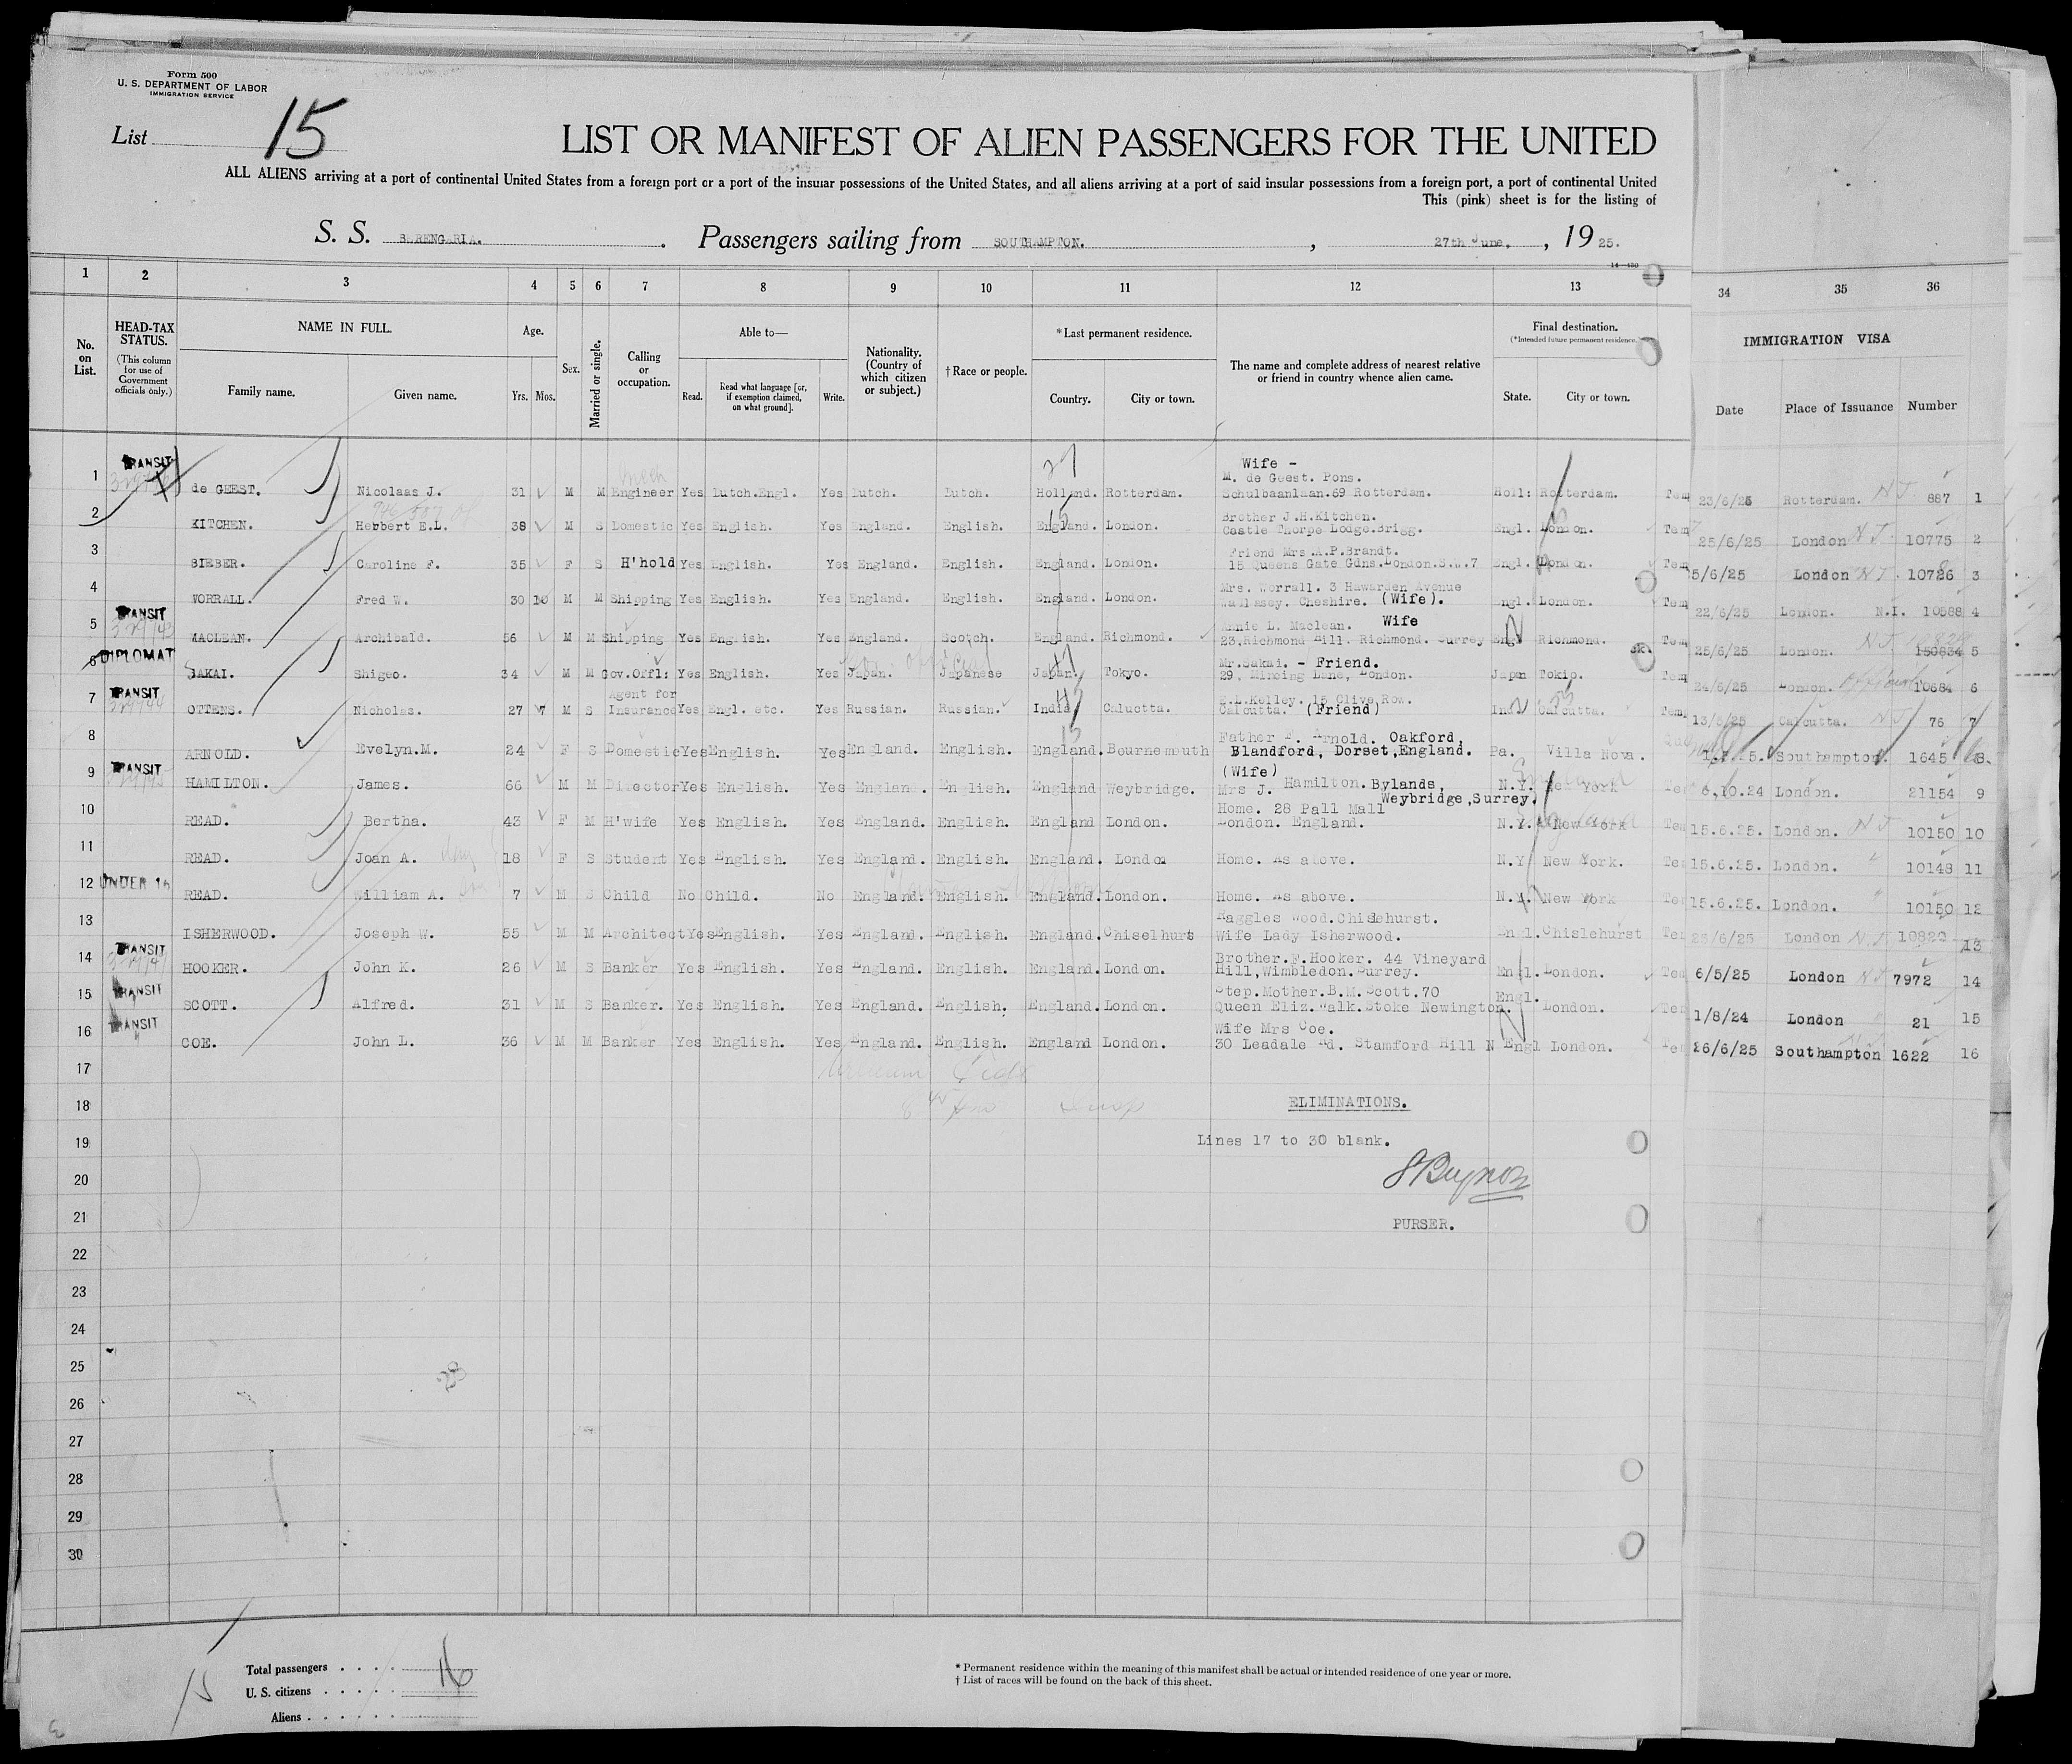 Form 500
U. S. DEPARTMENT OF LABOR
IMMIGRATION SERVICE
List 15
LIST OR MANIFEST OF ALIEN PASSENGERS FOR THE UNITED
ALL ALIENS arriving at a port of continental United States from a foreign port or a port of the insular possessions of the United States, and all aliens arriving at a port of said insular possessions from a foreign port, a port of continental United
This (pink) sheet is for the listing of
S. S. BERENGARIA. Passengers sailing from SOUTHAMPTON. , 27th June, , 19 25.
14—430
1 2 3 4 5 6 7 8 9 10 11 12 13 34 35 36
No. on List.
HEAD-TAX STATUS.
(This column for use of Government officials only.)
NAME IN FULL.
Family name. Given name.
Age.
Yrs. Mos.
Sex.
Married or single.
Calling or occupation.
Able to—
Read. Read what language [or, if exemption claimed, on what ground]. Write.
Nationality. (Country of which citizen or subject.)
† Race or people.
* Last permanent residence.
Country. City or town.
The name and complete address of nearest relative or friend in country whence alien came.
Final destination.
(* Intended future permanent residence.)
State. City or town.
IMMIGRATION VISA
Date Place of Issuance Number
27
Wife -
M. de Geest. Pons.
1 TRANSIT de GEEST. Nicolaas J. 31 M M Engineer Yes Dutch.Engl. Yes Dutch. Dutch. Holland. Rotterdam. Schulbaanlaan.69 Rotterdam. Holl: Rotterdam. Tem 23/6/25 Rotterdam. N J 887 1
Brother J.H.Kitchen.
2 KITCHEN. Herbert E.L. 38 M S Domestic Yes English. Yes England. English. England. London. Castle Thorpe Lodge.Brigg. Engl. London. Tem 25/6/25 London N J. 10775 2
Friend Mrs.A.P.Brandt.
3 BIEBER. Caroline F. 35 F S H'hold Yes English. Yes England. English. England. London. 15 Queens Gate Gdns.London.S.W.7 Engl. London. Tem 5/6/25 London N J. 10726 3
Mrs. Worrall. 3 Hawarden Avenue
4 WORRALL. Fred W. 30 10 M M Shipping Yes English. Yes England. English. England. London. Wallasey. Cheshire. (Wife). Engl. London. Tem 22/6/25 London. N.I. 10588 4
Annie L. Maclean. Wife
5 TRANSIT MACLEAN. Archibald. 56 M M Shipping Yes English. Yes England. Scotch. England. Richmond. 23,Richmond Hill. Richmond. Surrey Engl Richmond. Tem 25/6/25 London. N J. 150834 5
Mr.Sakai. - Friend.
6 DIPLOMAT SAKAI. Shigeo. 34 M M Gov.Offl: Yes English. Yes Japan. Japanese Japan. Tokyo. 29, Mincing Lane, London. Japan Tokio. Tem 24/6/25 London. 10684 6
Agent for
E.L.Kelley. 15 Clive Row.
7 TRANSIT OTTENS. Nicholas. 27 7 M S Insurance Yes Engl. etc. Yes Russian. Russian. India Caluctta. Calcutta. (Friend) Ind Calcutta. Tem 13/5/25 Calcutta. N J 76 7
Father F. Arnold. Oakford,
8 ARNOLD. Evelyn.M. 24 F S Domestic Yes English. Yes England. English. England. Bournemouth Blandford, Dorset,England. Pa. Villa Nova. Southampton. 1645 8
(Wife)
9 TRANSIT HAMILTON. James. 66 M M Director Yes English. Yes England. English. England Weybridge. Mrs J. Hamilton. Bylands, Weybridge,Surrey. N.Y. New York Tem 6.10.24 London. 21154 9
Home. 28 Pall Mall
10 READ. Bertha. 43 F M H'wife Yes English. Yes England. English. England London. London. England. N.Y. New York Tem 15.6.25. London. N J 10150 10
11 READ. Joan A. 18 F S Student Yes English. Yes England. English. England. London Home. As above. N.Y New York. Tem 15.6.25. London. " 10148 11
12 UNDER 16 READ. William A. 7 M S Child No Child. No England. English. England. London. Home. As above. N.Y. New York Tem 15.6.25. London. " 10150 12
Raggles Wood.Chislehurst.
13 ISHERWOOD. Joseph W. 55 M M Architect Yes English. Yes England. English. England. Chiselhurt Wife Lady Isherwood. Engl. Chislehurst Tem 25/6/25 London N J 10820 13
Brother.F.Hooker. 44 Vineyard
14 TRANSIT HOOKER. John K. 26 M S Banker Yes English. Yes England. English. England. London. Hill,Wimbledon.Surrey. Engl. London. Tem 6/5/25 London N J 7972 14
Step.Mother.B.M.Scott.70
15 TRANSIT SCOTT. Alfred. 31 M S Banker. Yes English. Yes England. English. England. London. Queen Eliz.Walk.Stoke Newington. Engl. London. Tem 1/8/24 London " 21 15
Wife Mrs Coe.
16 TRANSIT COE. John L. 36 M M Banker Yes English. Yes England. English. England London. 30 Leadale Rd. Stamford Hill N Engl London. Tem 26/6/25 Southampton 1622 16
17
18 ELIMINATIONS.
19 Lines 17 to 30 blank.
20
21 PURSER.
22
23
24
25
26
27
28
29
30
Total passengers . . . . 16
U. S. citizens . . . . .
Aliens . . . . . .
15
* Permanent residence within the meaning of this manifest shall be actual or intended residence of one year or more.
† List of races will be found on the back of this sheet.